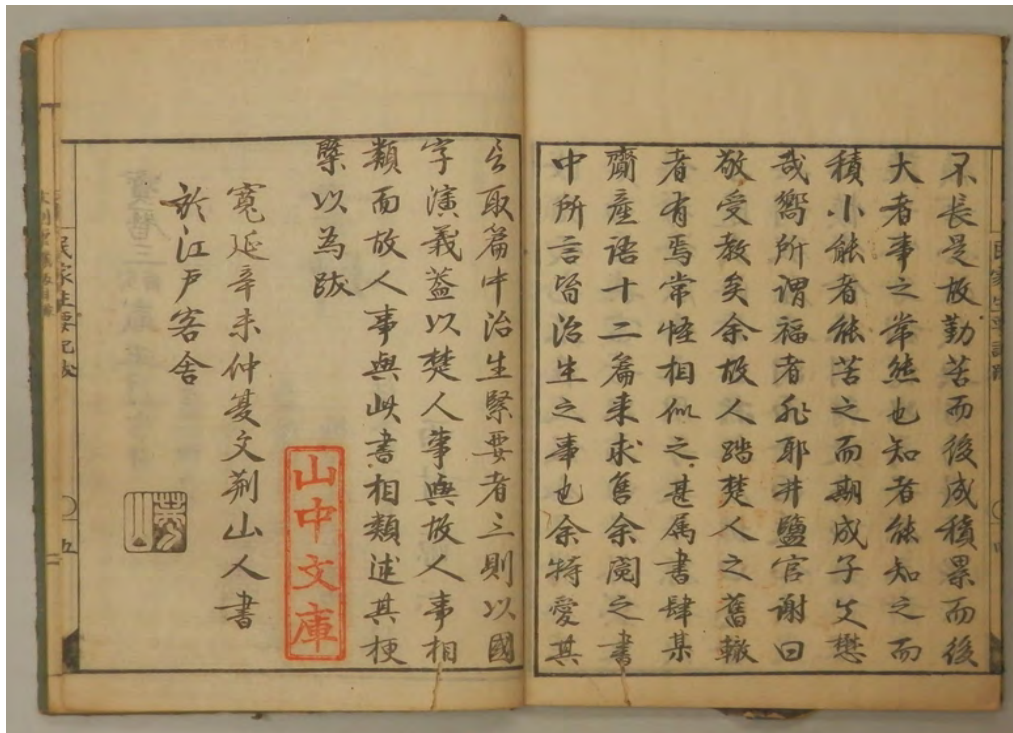 不長是故勤苦而後成積累而後
大者事之常態也知者能知之而
積小能者能苦之而期成子欠懋
哉嚮所謂福者非耶井鹽官謝曰
敬受教矣余故人踏楚人之舊轍
者有焉常怪相似之甚属書肆某
齎産語十二篇来求售余閲之書
中所言皆治生之事也余特愛其
言取篇中治生緊要者三則以國
字演義蓋以楚人事與故人事相
類而故人事與此書相類述其梗
槩以為跋
寛延辛未仲夏文荊山人書
於江戸客舎
山中文庫